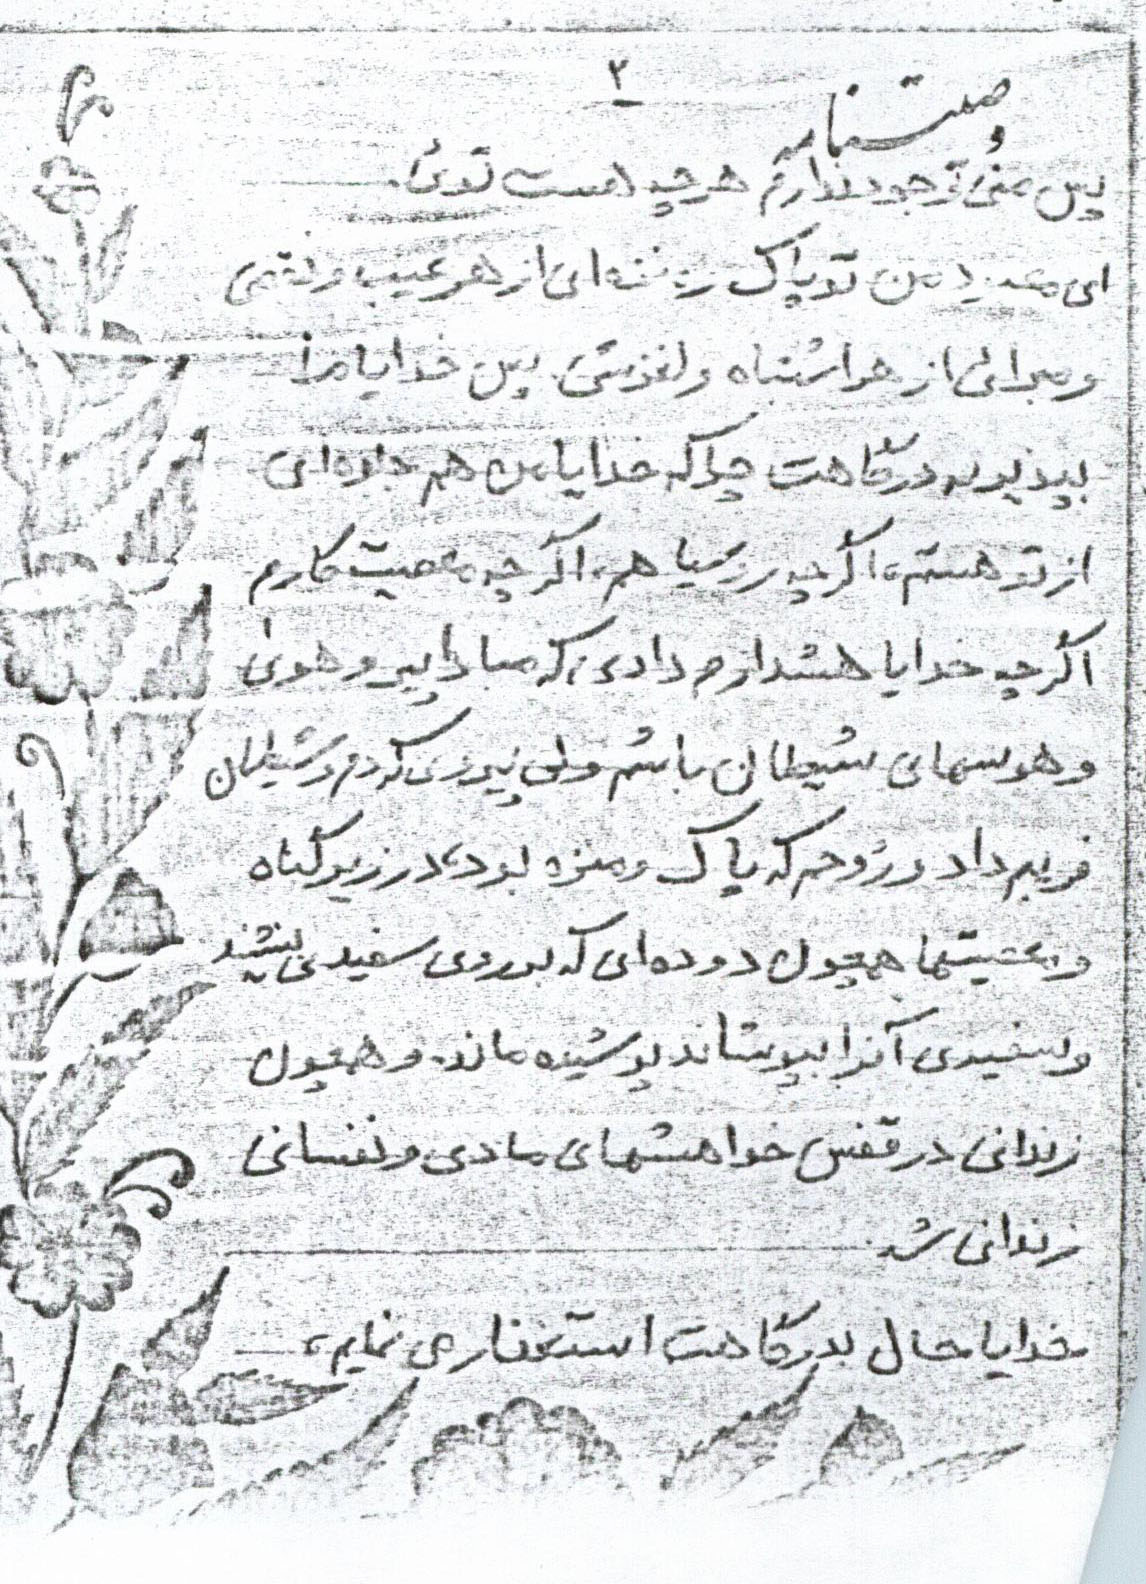 ۲
وصیتنامه
پس منی وجود ندارم هر چه هست توئی.
ای معبود من تو پاک و منزه‌ای از هر عیب و نقصی
و مبرائی از هر اشتباه و لغزشی پس خدایا مرا
بپذیر به درگاهت چرا که خدایا من هم جلوه‌ای
از تو هستم، اگر چه رو سیاهم، اگر چه معصیت کارم
اگر چه خدایا هشدارم دادی، که مبادا پیرو هوی
و هوسهای شیطان باشم ولی پیروی کردم و شیطان
فریبم داد و روحم که پاک و منزه بود، در زیر گناه
و معصیتها همچون دوده‌ای که بر روی سفیدی بنشیند
و سفیدی آنرا بپوشاند پوشیده ماند. و همچون
زندانی در قفس خواهشهای مادی و نفسانی
زندانی شد.
خدایا حال بدرگاهت استغفار می نمایم،